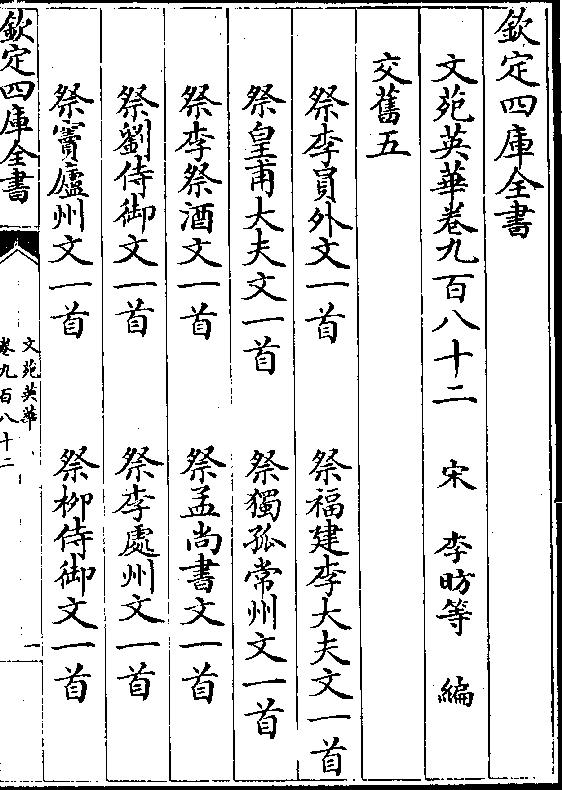 欽定四庫全書
文苑英華卷九百八十二 宋 李昉等 編
交舊五
祭李員外文一首 祭福建李大夫文一首
祭皇甫大夫文一首 祭獨孤常州文一首
祭李祭酒文一首 祭孟尚書文一首
祭劉侍御文一首 祭李處州文一首
祭竇廬州文一首 祭柳侍御文一首
欽定四庫全書
文苑英華
卷九百八十二
一